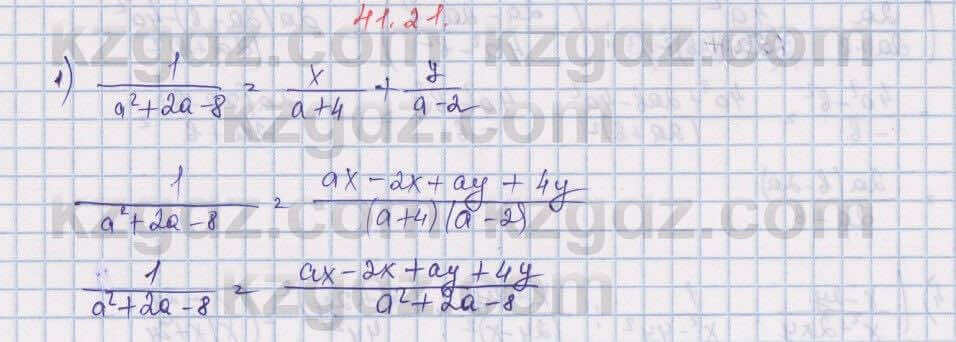 41.21.
1) 1/(a²+2a-8) = x/(a+4) + y/(a-2)
1/(a²+2a-8) = (ax-2x+ay+4y)/((a+4)(a-2))
1/(a²+2a-8) = (ax-2x+ay+4y)/(a²+2a-8)
kzgdz.com kzgdz.com
kzgdz.com kzgdz.com